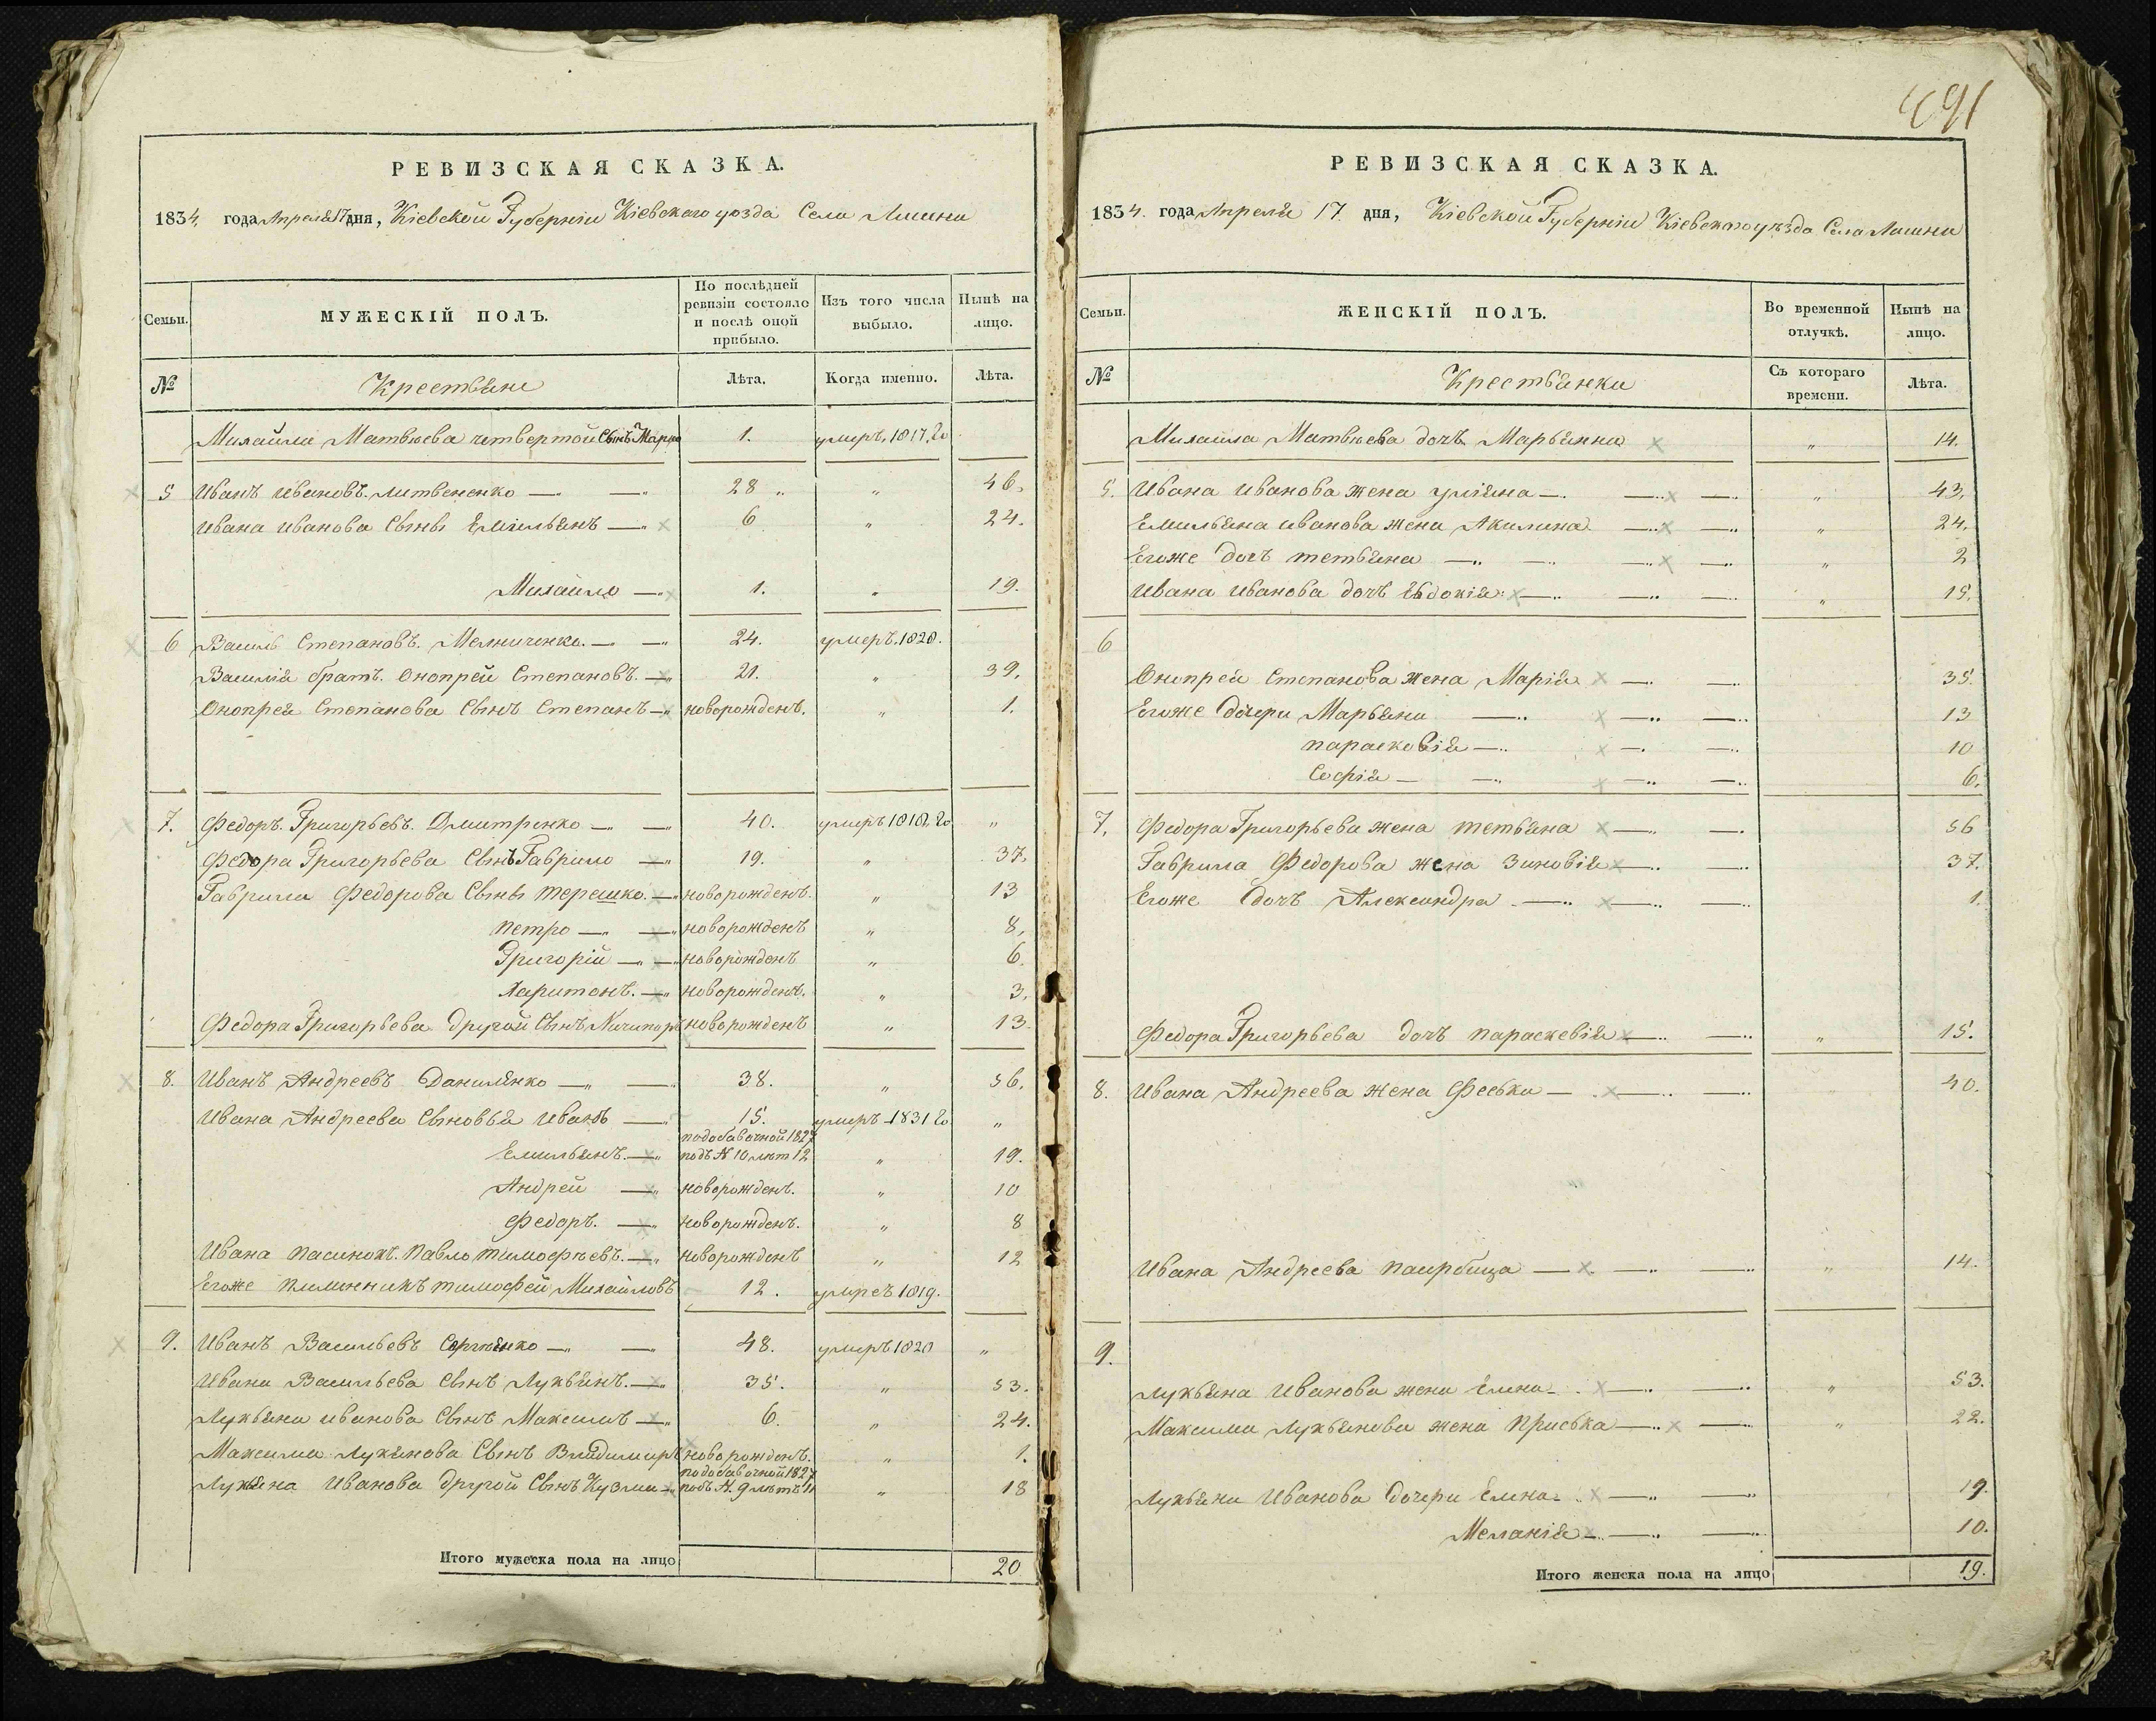 РЕВИЗСКАЯ СКАЗКА.
1834. года Апреля 17 дня, Кіевской Губерніи Кіевского уезда Села Лишни
Семьи. МУЖЕСКІЙ ПОЛЪ. По послѣдней ревизіи состояло и послѣ оной прибыло. Изъ того числа выбыло. Нынѣ на лицо.
№ Крестьяне Лѣта. Когда именно. Лѣта.
Михайла Матвюева четвертой Сынъ Марко 1. умеръ, 1817, го
5 Иванъ Ивановъ. Литвененко — — 28 „ „ 46.
Ивана Иванова Сыны Емильянъ — 6 „ 24.
Михайло — 1. „ 19.
6 Василь Степановъ. Мелниченко. — — 24. умеръ. 1828.
Василія братъ. Онопрей Степановъ. — 21. „ 39.
Онопрея Степанова Сынъ Степанъ — новорожденъ. „ 1.
7. Федоръ. Григорьевъ. Дмитренко — — 40. умеръ 1818, го „
Федора Григорьева Сынъ Гаврило — 19. „ 37.
Гаврила Федорова Сыны Терешко. — новорожденъ. „ 13
Петро — — новорожденъ „ 8.
Григорій — — новорожденъ „ 6.
Харитонъ. — новорожденъ. „ 3.
Федора Григорьева другой Сынъ Ничипоръ новорожденъ „ 13
8. Иванъ Андреевъ Данилянко — — 38. „ 56.
Ивана Андреева Сыновья Иванъ — 15. умеръ 1831 го „
Емильянъ. — подобавочной 1827 подъ № 10 лѣт 12 „ 19.
Андрей — новорожденъ. „ 10
Федоръ. — новорожденъ. „ 8
Ивана пасинокъ. Павло Тимофѣевъ. — новорожденъ „ 12
Егоже племенникъ Тимофей Михайловъ 12. умреъ 1819.
9. Иванъ Васильевъ Сергіенко — — 48. умеръ 1820 „
Ивана Васильева Сынъ Лукьянъ. — 35. „ 53.
Лукьяна Иванова Сынъ Максимъ — 6. „ 24.
Максима Лукянова Сынъ Владимиръ новорожденъ. „ 1.
Лукьяна Иванова другой Сынъ Кузма — подобавочной 1827 подъ №. 9 лѣтъ 11 „ 18
Итого мужеска пола на лицо 20
491
РЕВИЗСКАЯ СКАЗКА.
1834. года Апреля 17 дня, Кіевской Губерніи Кіевского уѣзда Села Лишни
Семьи. ЖЕНСКІЙ ПОЛЪ. Во временной отлучкѣ. Нынѣ на лицо.
№ Крестьянки Съ котораго времени. Лѣта.
Михаила Матвюева дочь Марьянна „ 14.
5. Ивана Иванова жена Уліяна — „ 43.
Емильяна Иванова жена Акилина — „ 24.
Егоже дочь Тетьяна — „ 2
Ивана Иванова дочь Евдокія — „ 15.
6
Онопрея Степанова жена Марія — 35.
Егоже дочери Марьяна — 13
Парасковія — 10
Софія — 6.
7. Федора Григорьева жена Тетьяна — 56
Гаврила Федорова жена Зиновія — 37.
Егоже дочь Александра — 1.
Федора Григорьева дочь Параскевія — „ 15.
8. Ивана Андреева жена Феська — 40.
Ивана Андреева паирбица — „ 14.
9.
Лукьяна Иванова жена Елена — „ 53.
Максима Лукьянова жена Приська — „ 22.
Лукьяна Иванова дочери Елена — 19.
Меланія — 10.
Итого женска пола на лицо 19.